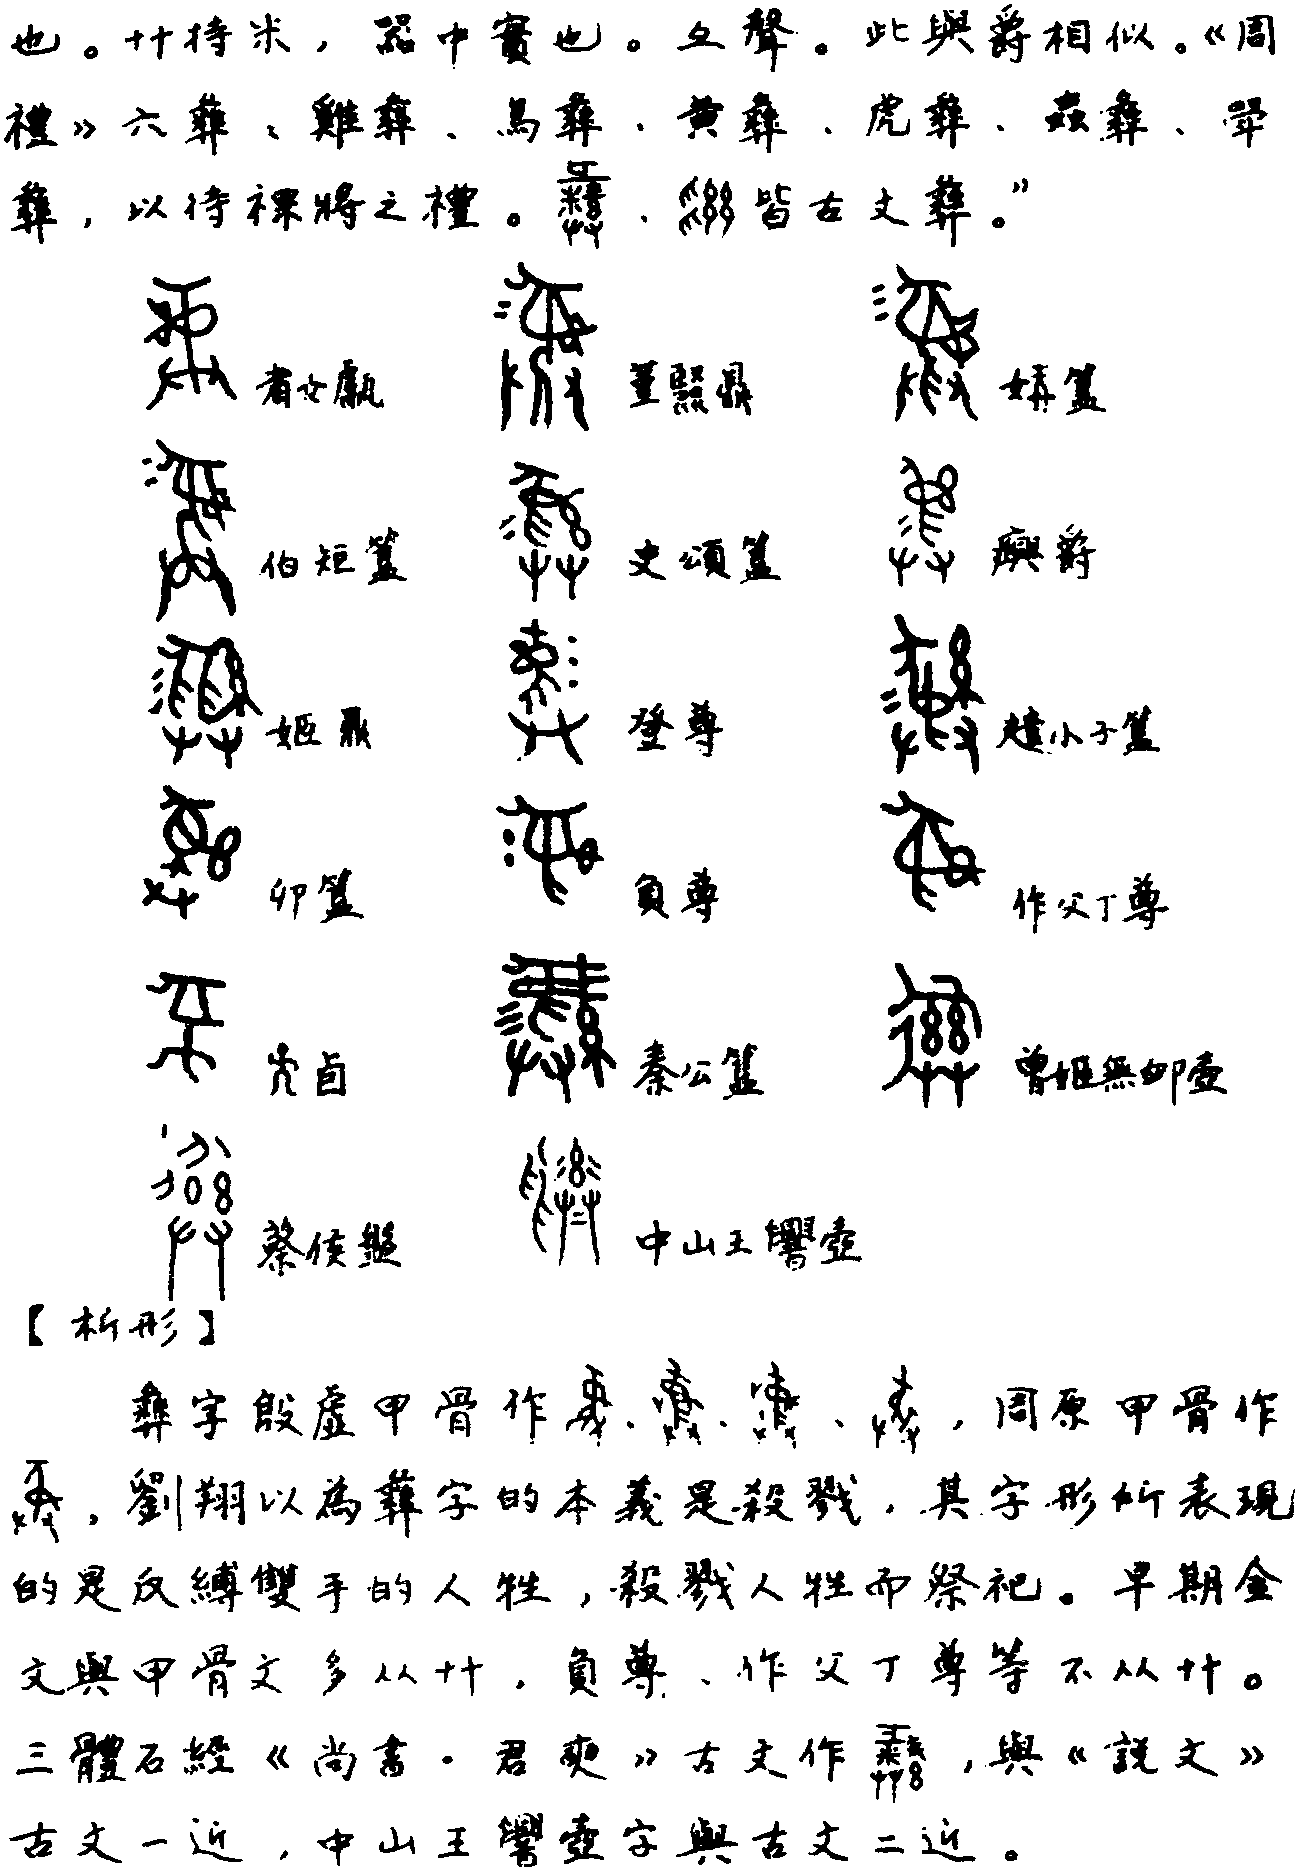 也。廾持米，器中實也。彑聲。此與爵相似。《周
禮》六彝、雞彝、鳥彝、黃彝、虎彝、蟲彝、斝
彝，以待祼將之禮。、皆古文彝。”
者女甗 堇鼎 媾簋
伯矩簋 史頌簋 𤼈爵
姬鼎 登尊 趞小子簋
卯簋 員尊 作父丁尊
卣 秦公簋 曾姬無卹壺
蔡侯 中山王壺
【析形】
彝字殷虛甲骨作、、、，周原甲骨作
，劉翔以為彝字的本義是殺戮，其字形所表現
的是反縛雙手的人牲，殺戮人牲而祭祀。早期金
文與甲骨文多从廾，員尊、作父丁尊等不从廾。
三體石經《尚書·君奭》古文作，與《說文》
古文一近，中山王壺字與古文二近。